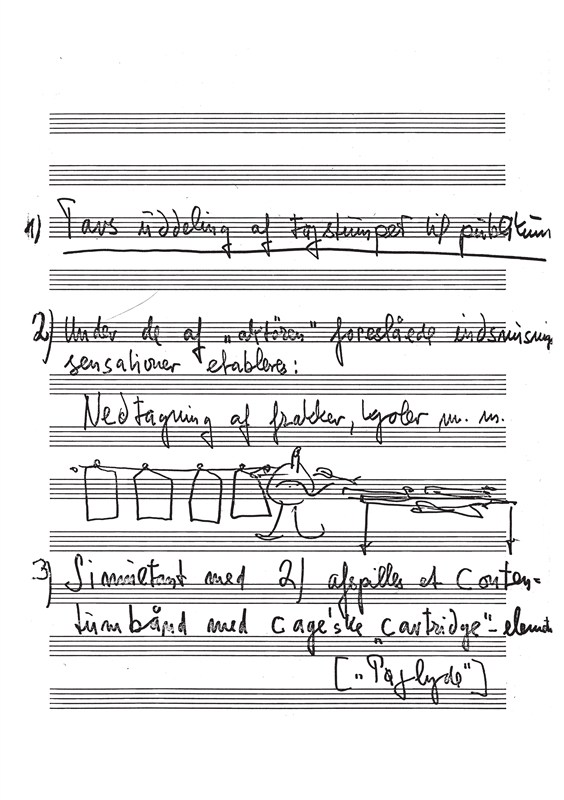 1) Tavs uddeling af tøjstumper til publikum
2) Under de af „aktören" foreslåede indsnusnings
sensationer etableres:
Nedtagning af frakker, kjoler m. m.
3) Simultant med 2) afspilles et Conten-
tumbånd med Cage'ske „Cartridge"-element
[„Tøjlyde"]